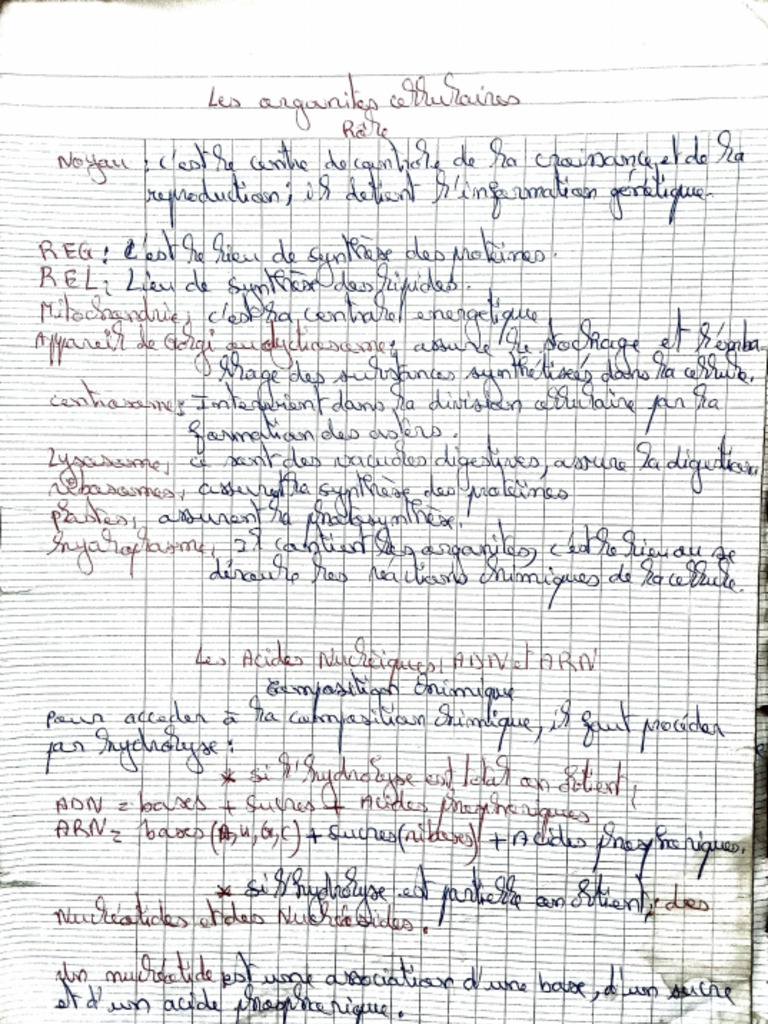 Les organites cellulaires
Rôle
Noyau : c'est le centre de contrôle de la croissance, et de la
reproduction ; il detient l'information génétique.
REG : c'est le lieu de synthèse des protéines.
REL : Lieu de synthèse des lipides.
Mitochondrie, c'est la central energetique
Appareil de Golgi ou dyctiosome ; assure le stockage et l'emba
llage des substances synthétisés dans la cellule.
centrosome ; Intervient dans la division cellulaire par la
formation des asters.
Lysosome, ce sont des vacuoles digestives, assure la digestion
ribosomes, assure la synthèse des protéines
plastes, assurent la photosynthèse.
hyaloplasme, Il contient les organites, c'est le lieu ou se
déroule les réactions chimiques de la cellule.
Les Acides Nucléiques : ADN et ARN
Composition chimique
Pour acceder à la composition chimique, il faut procéder
par hydrolyse :
* si l'hydrolyse est total on obtient ;
ADN = bases + sucres + Acides phosphoriques
ARN = bases (A, U, G, C) + sucres (ribose) + Acides phosphoriques.
* si l'hydrolyse est partielle on obtient ; des
Nucléotides et des Nucléosides.
Un nucléotide est une association d'une base, d'un sucre
et d'un acide phosphorique.